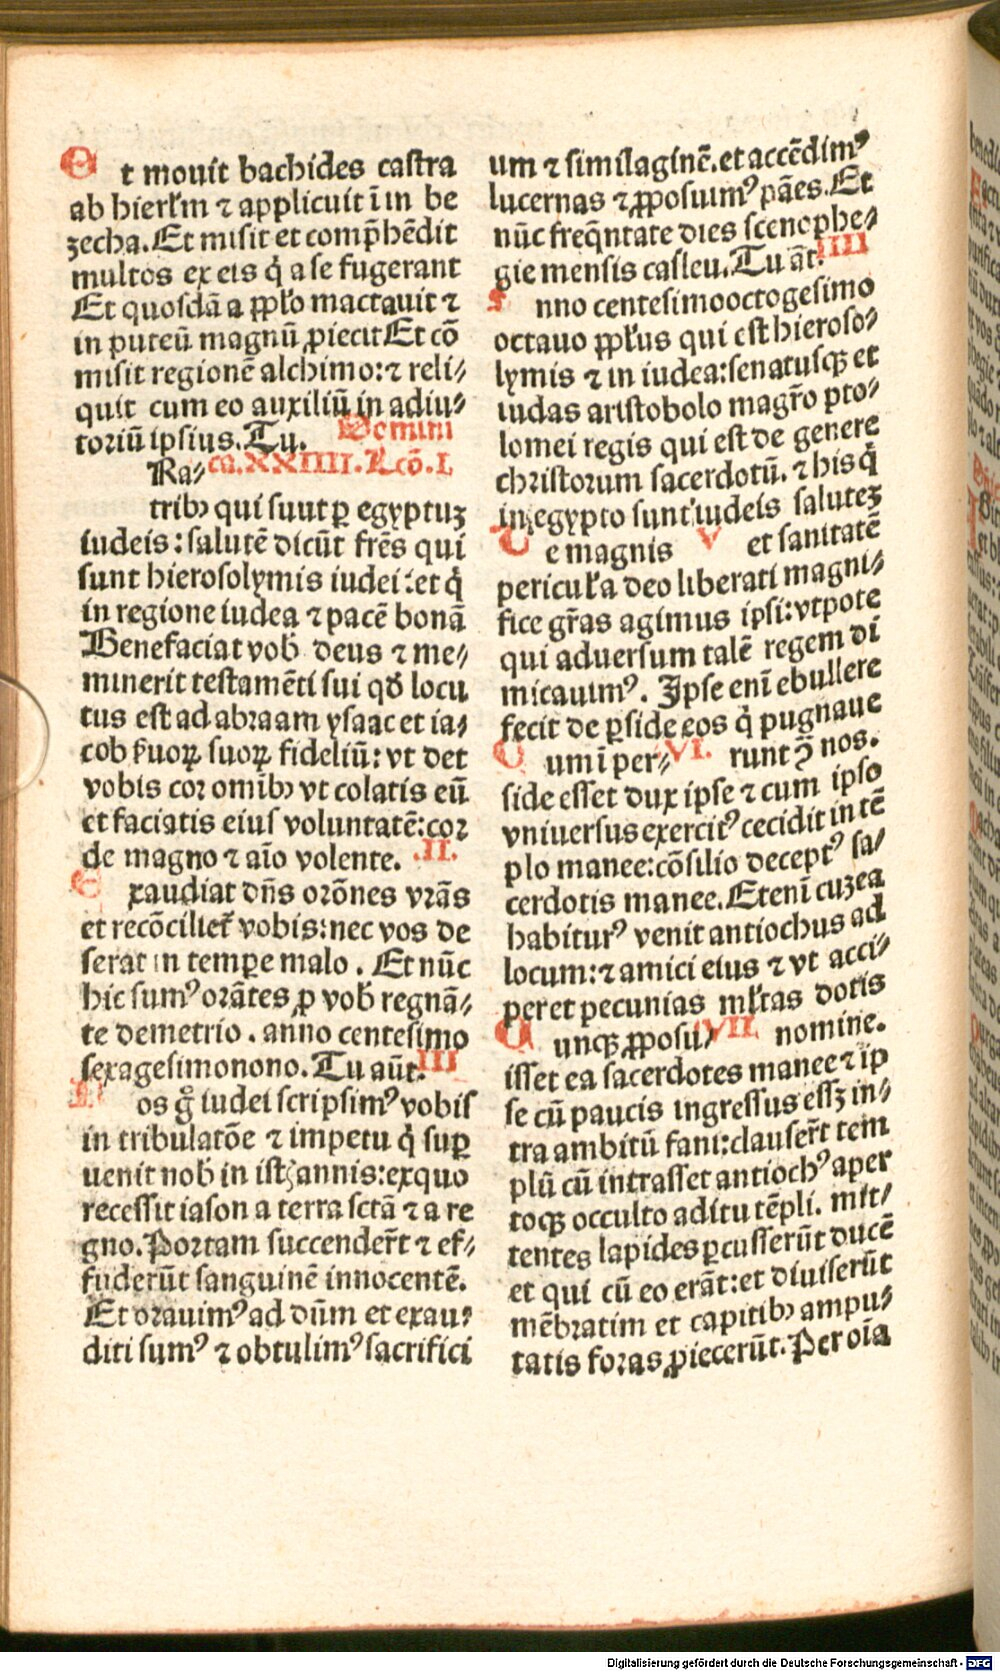 Et mouit bachides castra
ab hierłm ⁊ applicuit ī in be
zecha. Et misit et comp̄hēdit
multos ex eis q̇ a se fugerant
Et quosdā a ppło mactauit ⁊
in puteū magnū ꝓiecit Et cō
misit regionē alchimo: ⁊ reli⸗
quit cum eo auxiliū in adiu⸗
toriū ipsius. Tu. Domini
Ra⸗ ca. XXIIII. Lcō. I.
tribꝰ qui sunt ꝑ egyptuꝫ
iudeis: salutē dicūt fr̄es qui
sunt hierosolymis iudei: et q̇
in regione iudea ⁊ pacē bonā
Benefaciat vob̄ deus ⁊ me⸗
minerit testamēti sui qd̄ locu
tus est ad abraam ysaac et ia⸗
cob ẜuoꝝ suoꝝ fideliū: vt det
vobis cor omībꝰ vt colatis eū
et faciatis eius voluntatē: cor
de magno ⁊ aīo volente. .II.
Exaudiat dn̄s orōnes vr̄as
et recōcilieť vobis: nec vos de
serat in tempꝑe malo . Et nūc
hic sumꝰ orātes ꝓ vob̄ regnā⸗
te demetrio . anno centesimo
sexagesimonono. Tu aūt. III
Nos g̊ iudei scripsimꝰ vobis
in tribulatōe ⁊ impetu q̇ suꝑ
uenit nob̄ in istꝭ annis: ex quo
recessit iason a terra sctā ⁊ a re
gno. Portam succender̄t ⁊ ef⸗
fuderūt sanguinē innocentē.
Et orauimꝰ ad dn̄m et exau⸗
diti sumꝰ ⁊ obtulimꝰ sacrifici
um ⁊ similaginē. et accēdimꝰ
lucernas ⁊ ꝓposuimꝰ pāes. Et
nūc freq̄ntate dies scenophe⸗
gie mensis casleu. Tu āt. IIII
Anno centesimooctogesimo
octauo ppłus qui est hieroso⸗
lymis ⁊ in iudea: senatusqꝫ et
iudas aristobolo magr̄o pto⸗
lomei regis qui est de genere
christorum sacerdotū. ⁊ his q̇
in egypto sunt iudeis salutez
Te magnis V et sanitatē
pericuła deo liberati magni⸗
fice gr̄as agimus ipsi: vtpote
qui aduersum talē regem di
micauimꝰ. Ipse enī ebullere
fecit de ꝑside eos q̇ pugnaue
Cum ī per⸗ VI. runt ꝯ nos.
side esset dux ipse ⁊ cum ipso
vniuersus exercitꝰ cecidit in tē
plo manee: cōsilio deceptꝰ sa⸗
cerdotis manee. Etenī cuz ea
habiturꝰ venit antiochus ad
locum: ⁊ amici eius ⁊ vt acci⸗
peret pecunias młtas dotis
Cunqꝫ ꝓposui⸗ VII. nomine.
isset ea sacerdotes manee ⁊ ip
se cū paucis ingressus essꝫ in⸗
tra ambitū fani: clauser̄t tem
plū cū intrasset antiochꝰ aper
toqꝫ occulto aditu tēpli. mit⸗
tentes lapides ꝑcusserūt ducē
et qui cū eo erāt: et diuiserūt
mēbratim et capitibꝰ ampu⸗
tatis foras ꝓiecerūt. Per oīa
Digitalisierung gefördert durch die Deutsche Forschungsgemeinschaft - DFG